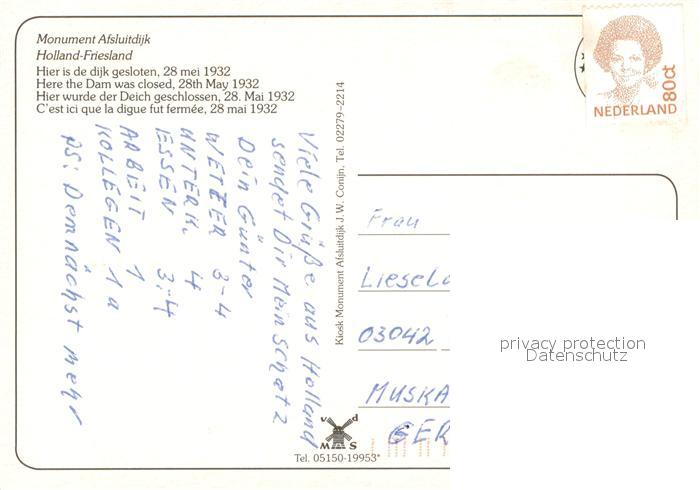 Monument Afsluitdijk
Holland-Friesland
Hier is de dijk gesloten, 28 mei 1932
Here the Dam was closed, 28th May 1932
Hier wurde der Deich geschlossen, 28. Mai 1932
C'est ici que la digue fut fermée, 28 mai 1932
NEDERLAND
80ct
Kiosk Monument Afsluitdijk J.W. Conijn, Tel. 02279-2214
Viele Grüße aus Holland
sendet Dir Mein Schatz
Dein Günter
WETTER 3-4
UNTERK. 4
ESSEN 3-4
ARBEIT 1
KOLLEGEN 1a
PS: Demnächst mehr
Frau
Liesel
03042
MUSKA
GER
privacy protection
Datenschutz
v d
M S
Tel. 05150-19953*